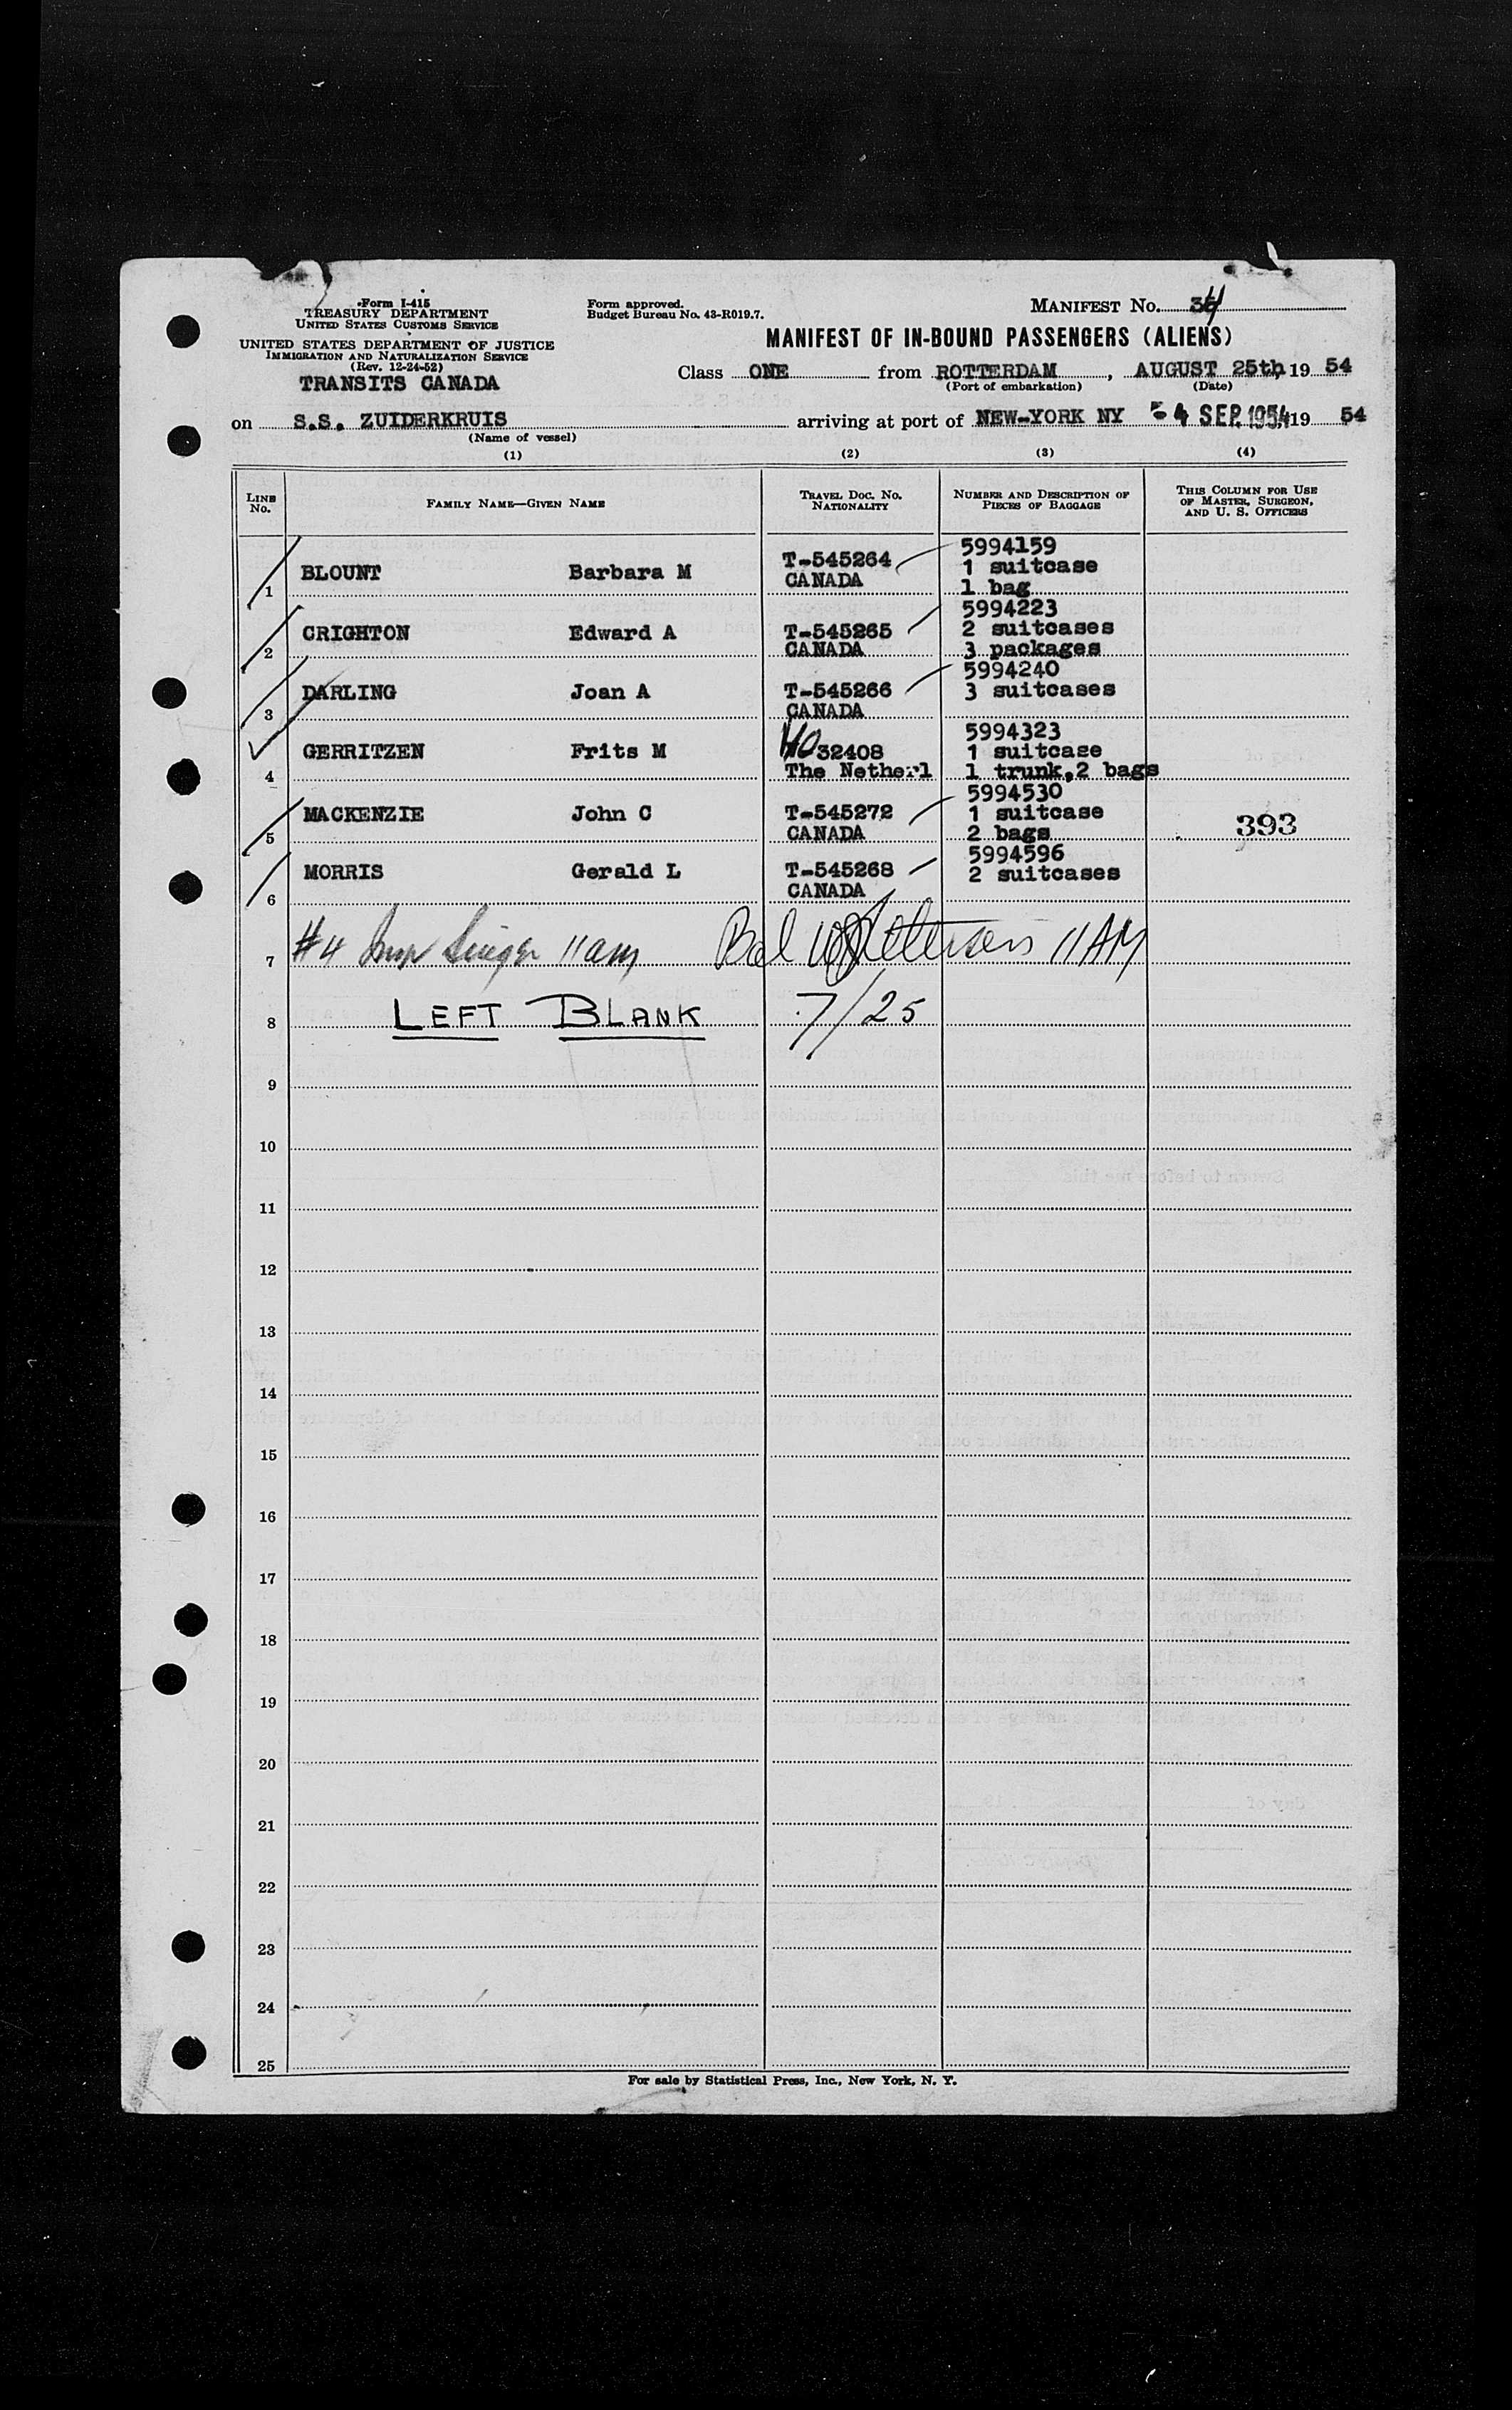 Form I-415
TREASURY DEPARTMENT
UNITED STATES CUSTOMS SERVICE
UNITED STATES DEPARTMENT OF JUSTICE
IMMIGRATION AND NATURALIZATION SERVICE
(Rev. 12-24-52)
TRANSITS CANADA
Form approved.
Budget Bureau No. 43-R019.7.
MANIFEST No. 34
MANIFEST OF IN-BOUND PASSENGERS (ALIENS)
Class ONE from ROTTERDAM, AUGUST 25th, 19 54
(Port of embarkation) (Date)
on S.S. ZUIDERKRUIS arriving at port of NEW-YORK NY 4 SEP. 1954 19 54
(Name of vessel)
(1) (2) (3) (4)
LINE No. FAMILY NAME—GIVEN NAME TRAVEL DOC. NO. NATIONALITY NUMBER AND DESCRIPTION OF PIECES OF BAGGAGE THIS COLUMN FOR USE OF MASTER, SURGEON, AND U. S. OFFICERS
1 BLOUNT Barbara M T-545264 CANADA 5994159 1 suitcase 1 bag
2 CRIGHTON Edward A T-545265 CANADA 5994223 2 suitcases 3 packages
3 DARLING Joan A T-545266 CANADA 5994240 3 suitcases
4 GERRITZEN Frits M 32408 The Netherl 5994323 1 suitcase 1 trunk, 2 bags
5 MACKENZIE John C T-545272 CANADA 5994530 1 suitcase 2 bags 393
6 MORRIS Gerald L T-545268 CANADA 5994596 2 suitcases
7 #4 11 am Bal 11 AM
8 LEFT BLANK 7/25
9
10
11
12
13
14
15
16
17
18
19
20
21
22
23
24
25
For sale by Statistical Press, Inc., New York, N. Y.